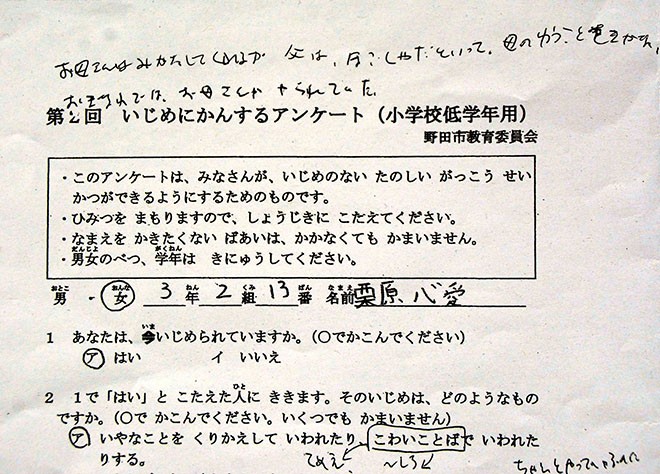 お母さんはみかたしてくれるが 父は、 といって、母のゆうことを
お母さんが やられていた。
第2回 いじめにかんするアンケート（小学校低学年用）
野田市教育委員会
・このアンケートは、みなさんが、いじめのない たのしい がっこう せい
かつができるようにするためのものです。
・ひみつを まもりますので、しょうじきに こたえてください。
・なまえを かきたくない ばあいは、かかなくても かまいません。
・男女のべつ、学年は きにゅうしてください。
男 ・ 女 3年 2組 13番 名前 栗原、心愛
1 あなたは、今いじめられていますか。（○でかこんでください）
ア はい イ いいえ
2 1で「はい」と こたえた人に ききます。そのいじめは、どのようなもの
ですか。（○で かこんでください。いくつでも かまいません）
ア いやなことを くりかえして いわれたり、こわいことばで いわれた
りする。 てめえ 〜しろ